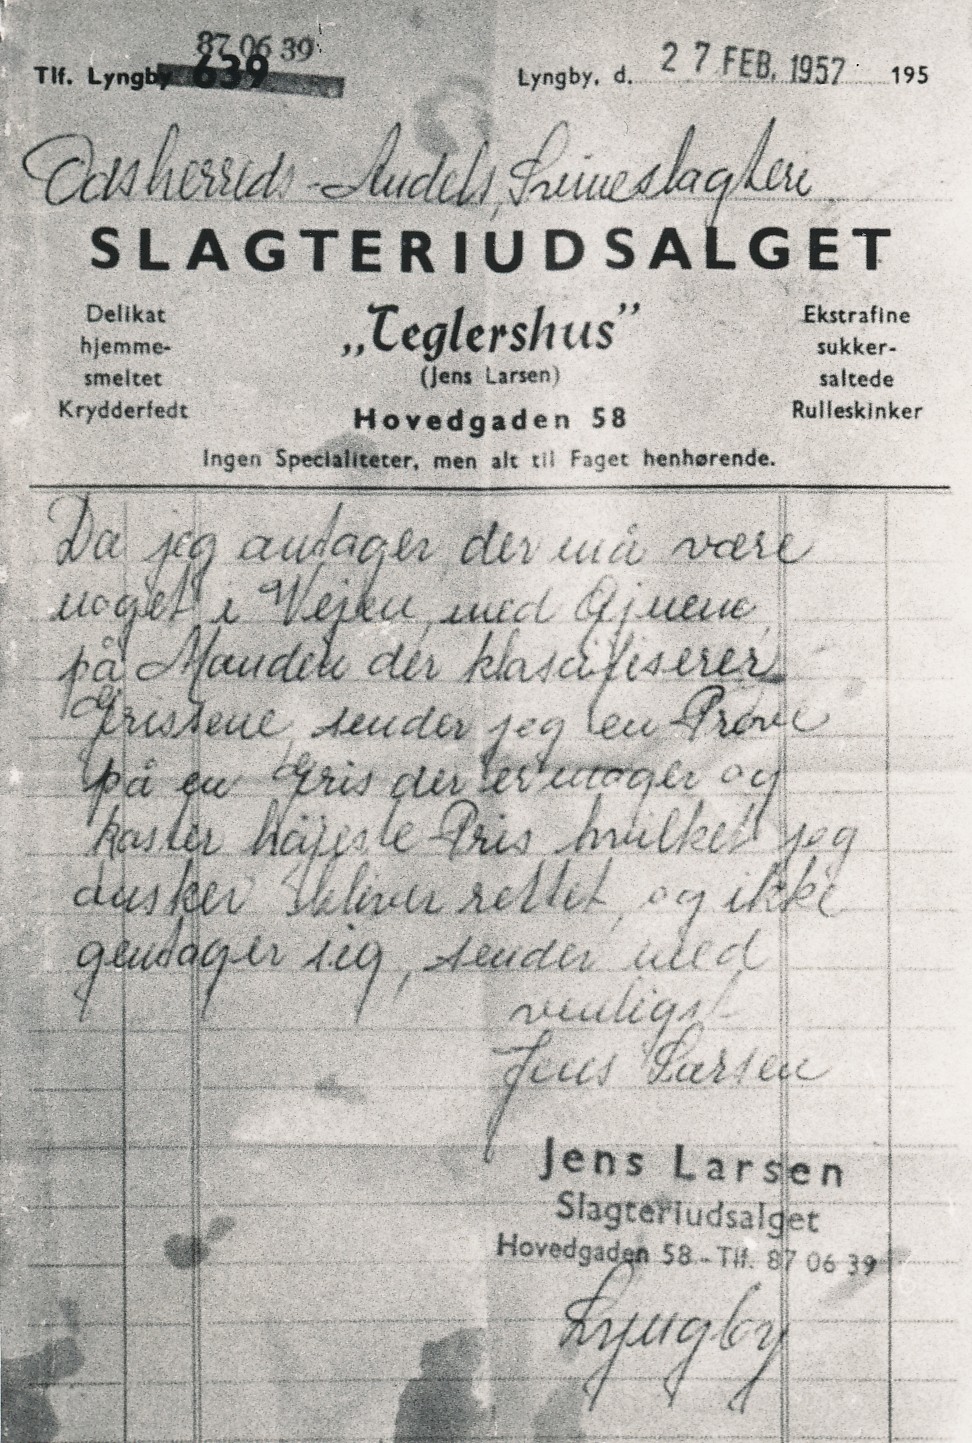 87 06 39
Tlf. Lyngby 639
Lyngby, d. 27 FEB. 1957 195
Odsherreds-Andels, Svineslagteri.
SLAGTERIUDSALGET
Delikat
hjemme-
smeltet
Krydderfedt
„Teglershus”
(Jens Larsen)
Hovedgaden 58
Ekstrafine
sukker-
saltede
Rulleskinker
Ingen Specialiteter, men alt til Faget henhørende.
Da jeg antager der må være
noget i Vejen med Øjnene
på Manden der klasifiserer
Grissene, sender jeg en Prøve
på en Gris der er mager og
koster højeste Pris hvilket jeg
ønsker bliver rettet, og ikke
gentager sig, sender med
venligst
Jens Larsen
Jens Larsen
Slagteriudsalget
Hovedgaden 58 - Tlf. 87 06 39
Lyngby